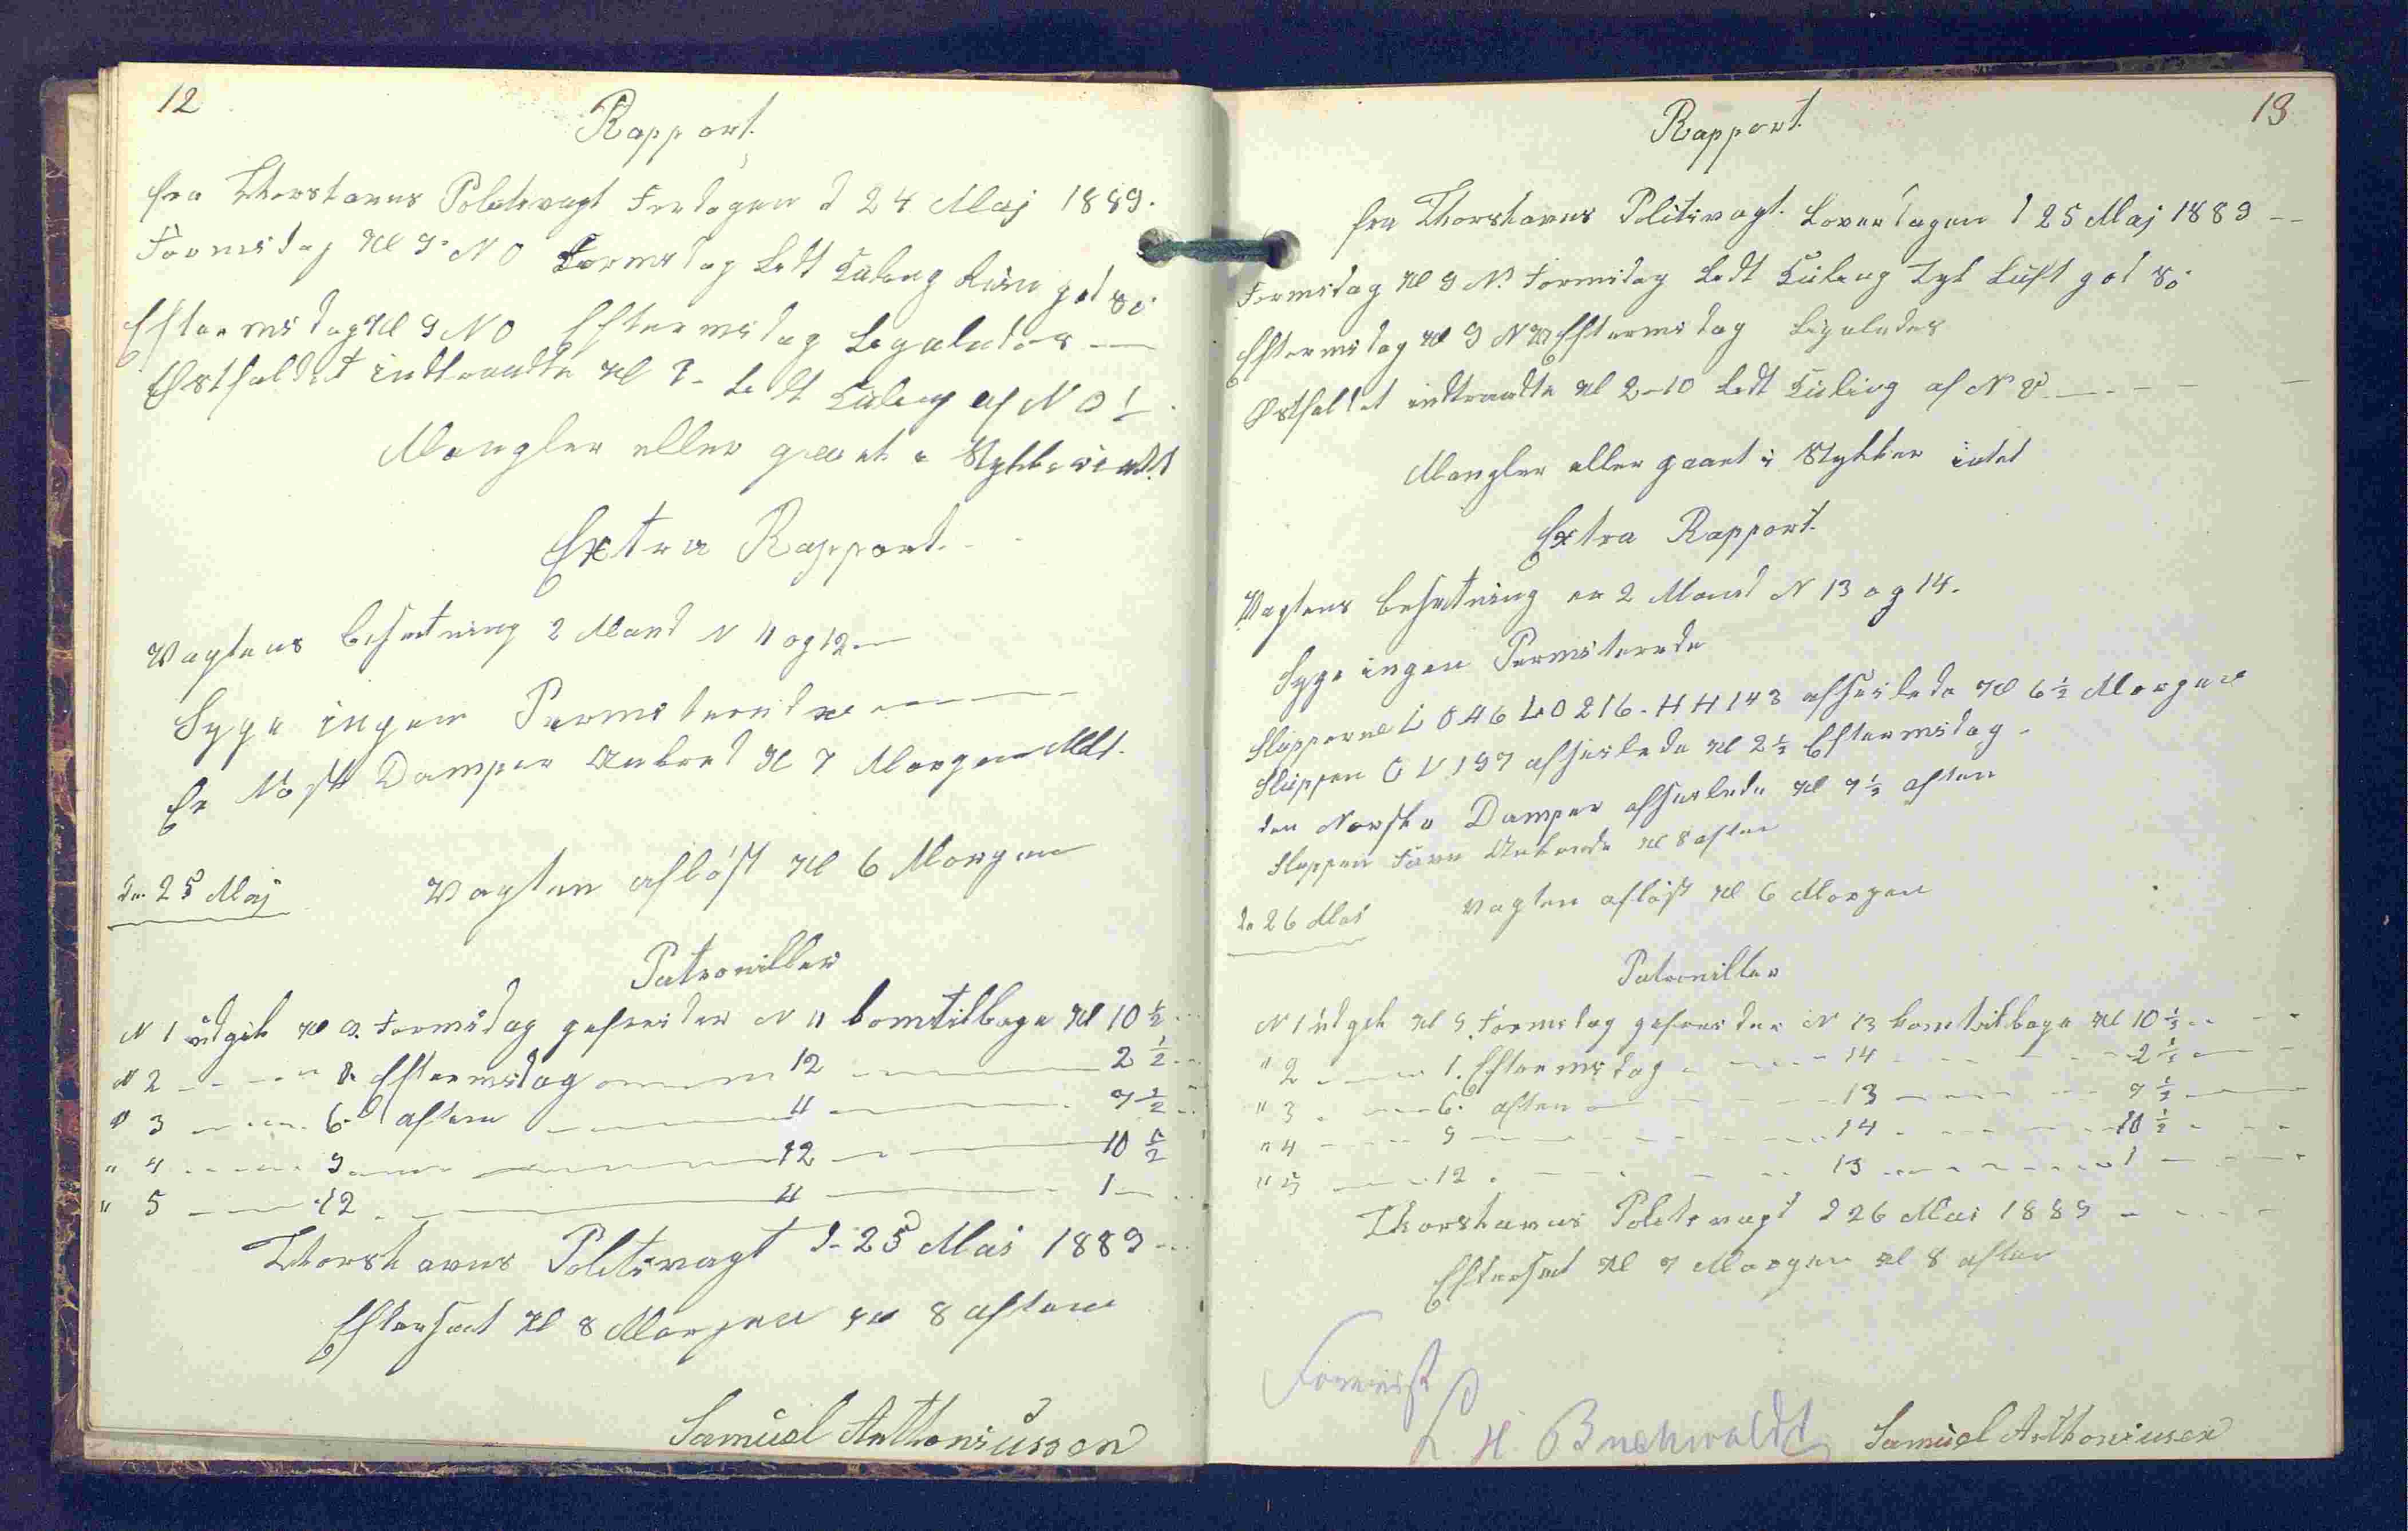 12
Rapport
fra Thorshavns Politivagt Fredagen d 24 Maj 1889.
Formidag Kl 9 NO Formidag Let Kuling Luvt god Sø
Eftermidag Kl 9 NO Eftermidag Ligeledes
Østfaldet indtraadte Kl Let Kuling af NO
Mangler eller gaaet i Stykker intet
Extra Rapport
Vagtens Besætning 2 Mand N 11 og 12
Syge ingen Permiterede
En Norsk Damper Ankred Kl 7 Morgen
d. 25 Maj Vagten afløst Kl 6 Morgen
Patrouiller
N 1 udgik Kl 9. Formidag gefreider N 11 komtilbage Kl 10 ½
N 2 Eftermidag 12 2 ½
" 3 6 aften 11 7 ½
" 4 9 12 10 ½
" 5 12 11 1
Thorshavns Politivagt d. 25 Mai 1889
Efterset Kl 8 Morgen Kl 8 aften
Samuel Anthoniussen
13
Rapport
fra Thorshavns Politivagt. Løverdagen d 25 Maj 1889
Formidag Kl 9 N. Formidag Let Kuling Tyk Luft god Sø
Eftermidag Kl 9 NV Eftermidag Ligeledes
Østfaldet indtraadte Kl 2-10 Let Kuling af N
Mangler eller gaaet i Stykker intet
Extra Rapport
Vagtens Besætning er 2 Mand N 13 og 14.
Syge ingen Permiterede
Slupperne LO46 LO216. HH143 afseilede Kl 6½ Morgen
Sluppen 197 afseilede Kl 2½ Eftermidag
den Norske Damper afseilede Kl 7½ aften
Sluppen Ankrede Kl 8 aften
d. 26 Mai Vagten afløst Kl 6 Morgen
Patrouiller
N 1 udgik Kl 9. Formidag gefreider N 13 kom tilbage Kl 10 ½
" 2 1. Eftermidag 14 2 ½
" 3 6. aften 13 7 ½
" 4 9 14 10 ½
" 5 12 13 1
Thorshavns Politivagt d 26 Mai 1889
Efterset Kl 7 Morgen Kl 8 aften
Forevist
H Buchwaldt Samuel Anthoniusen